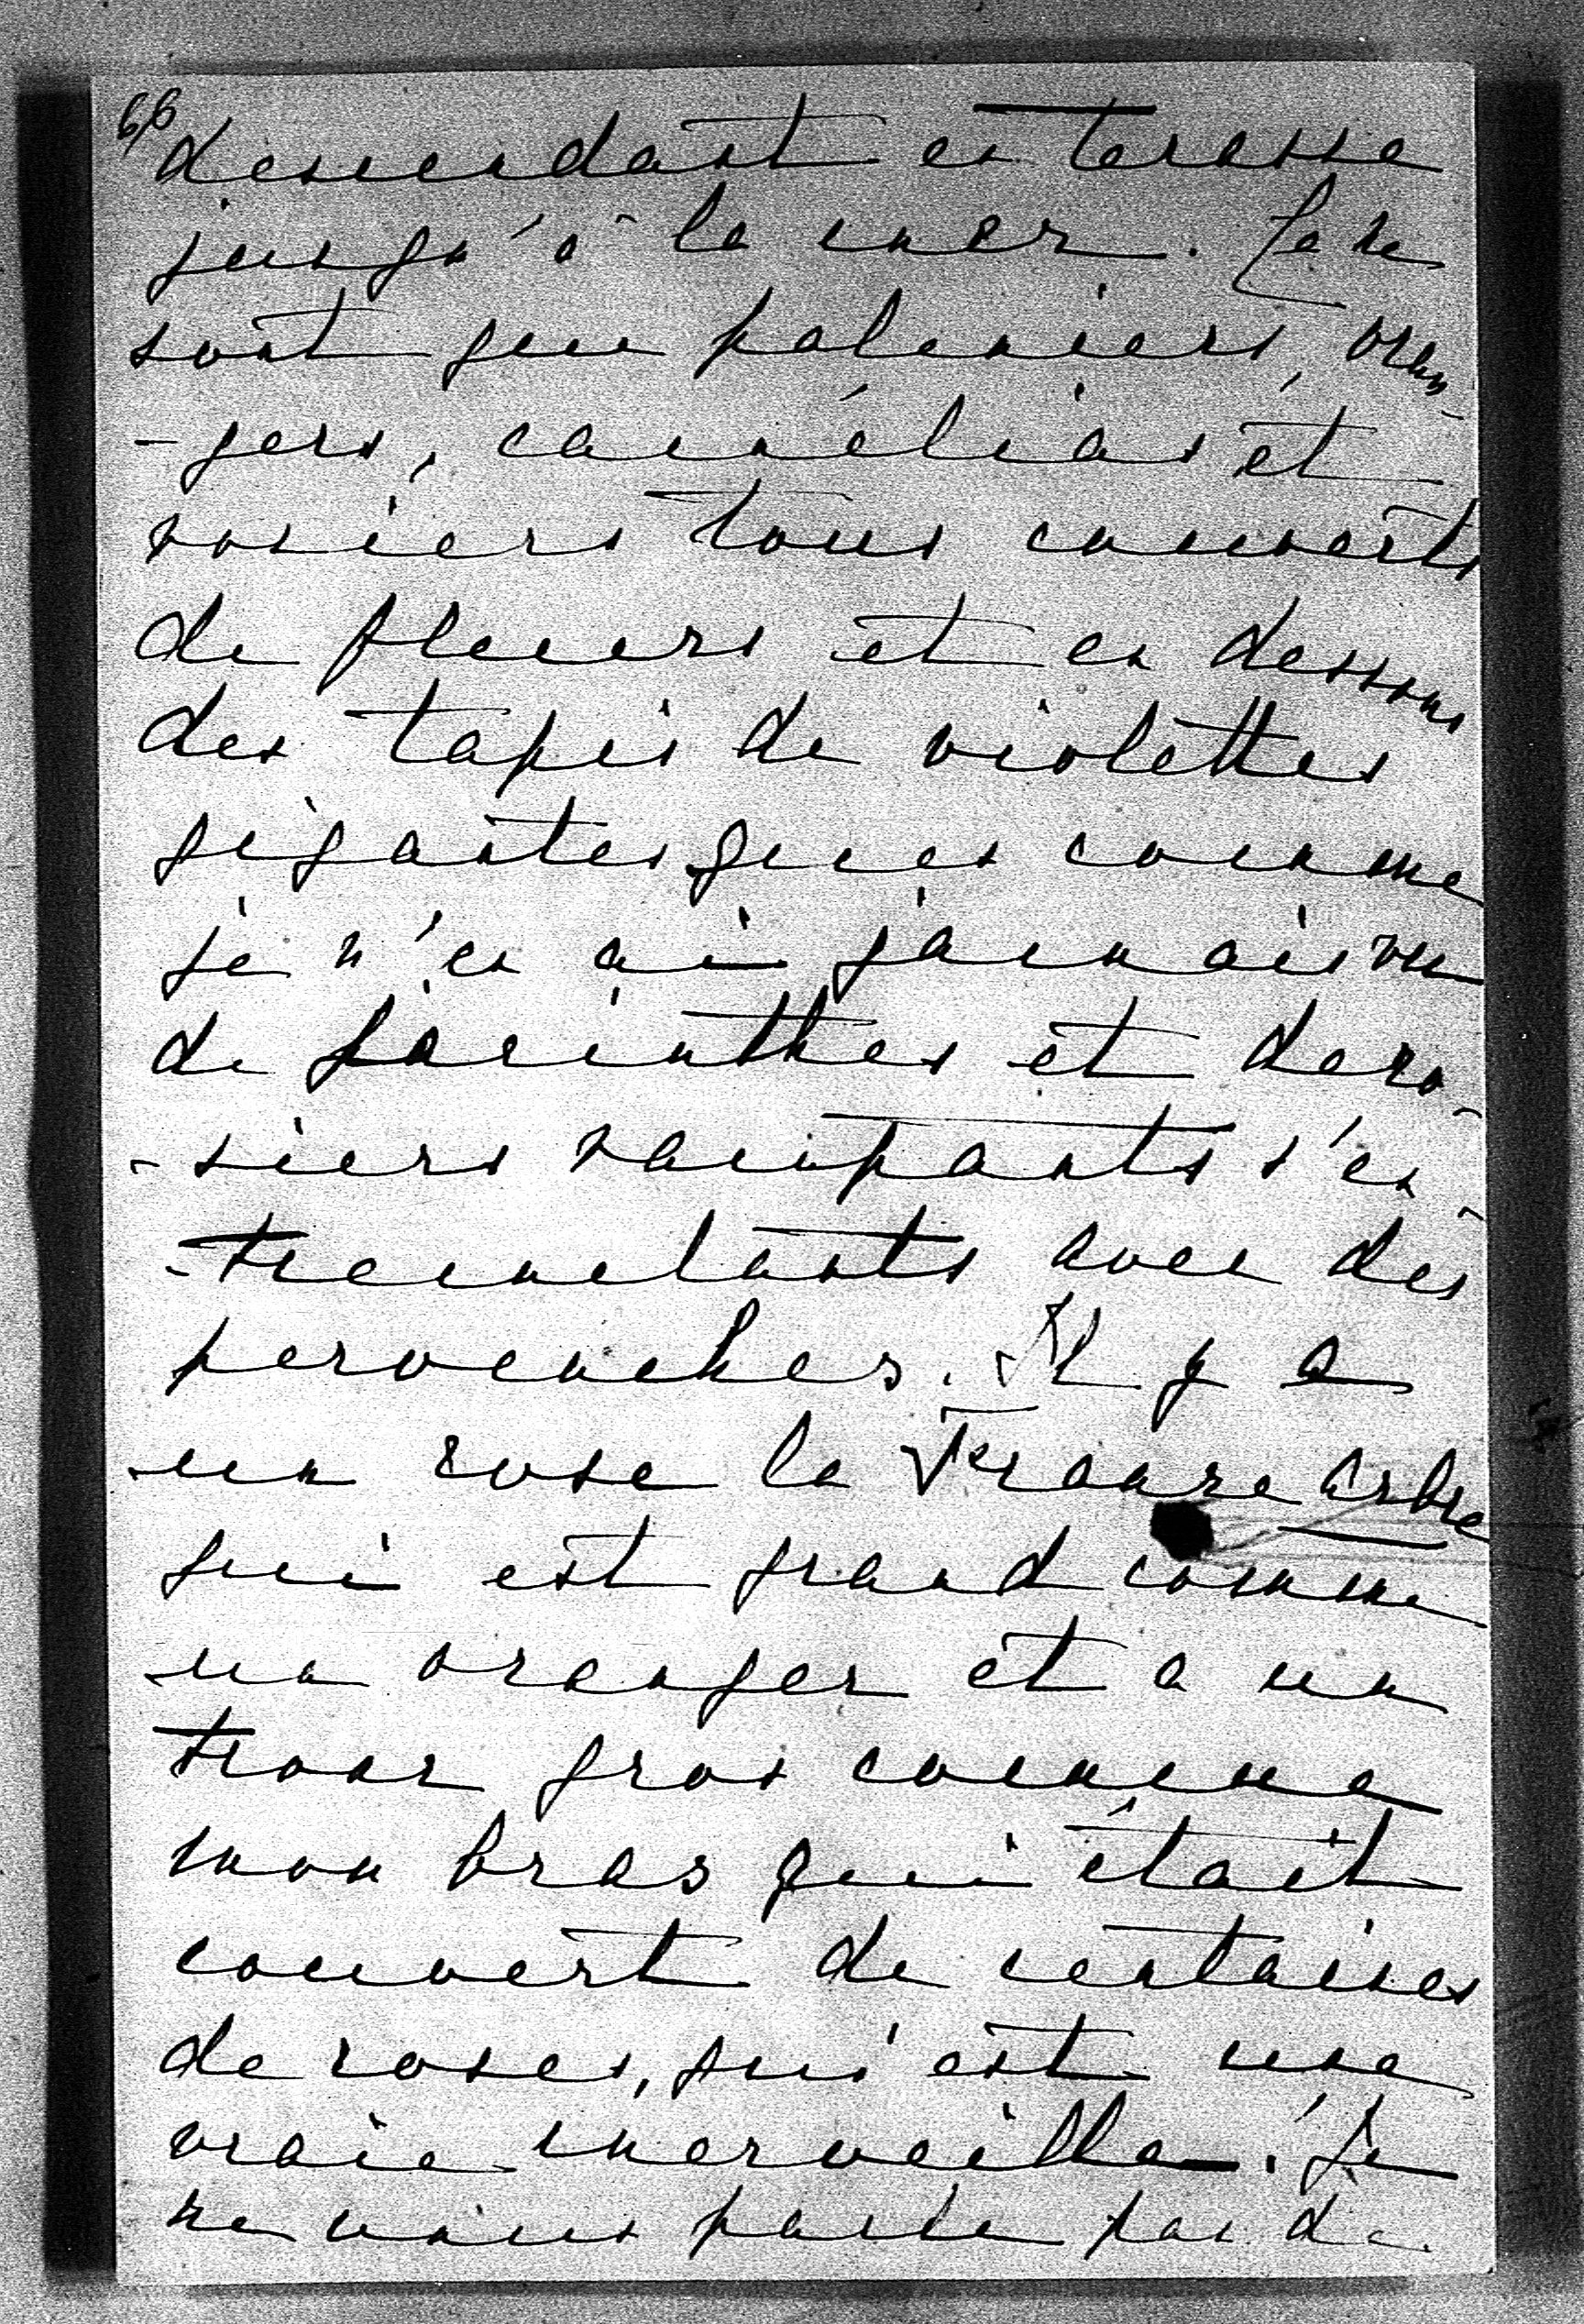 66
descendant en terasse
jusqu'à la mer. Ce ne
sont que palmiers, oran-
-gers, camélias et
rosiers tous couverts
de fleurs et en dessous
des tapis de violettes
gigantesques comme
je n'en ai jamais vu
de jacinthes et de ro-
-siers rampants s'en-
-tremelants avec des
pervenches. Il y a
un rose la France arbre
qui est grand comme
un oranger et a un
tronc gros comme
mon bras qui était
couvert de centaines
de roses, qui est une
vraie merveille. Je
ne vous parle pas de